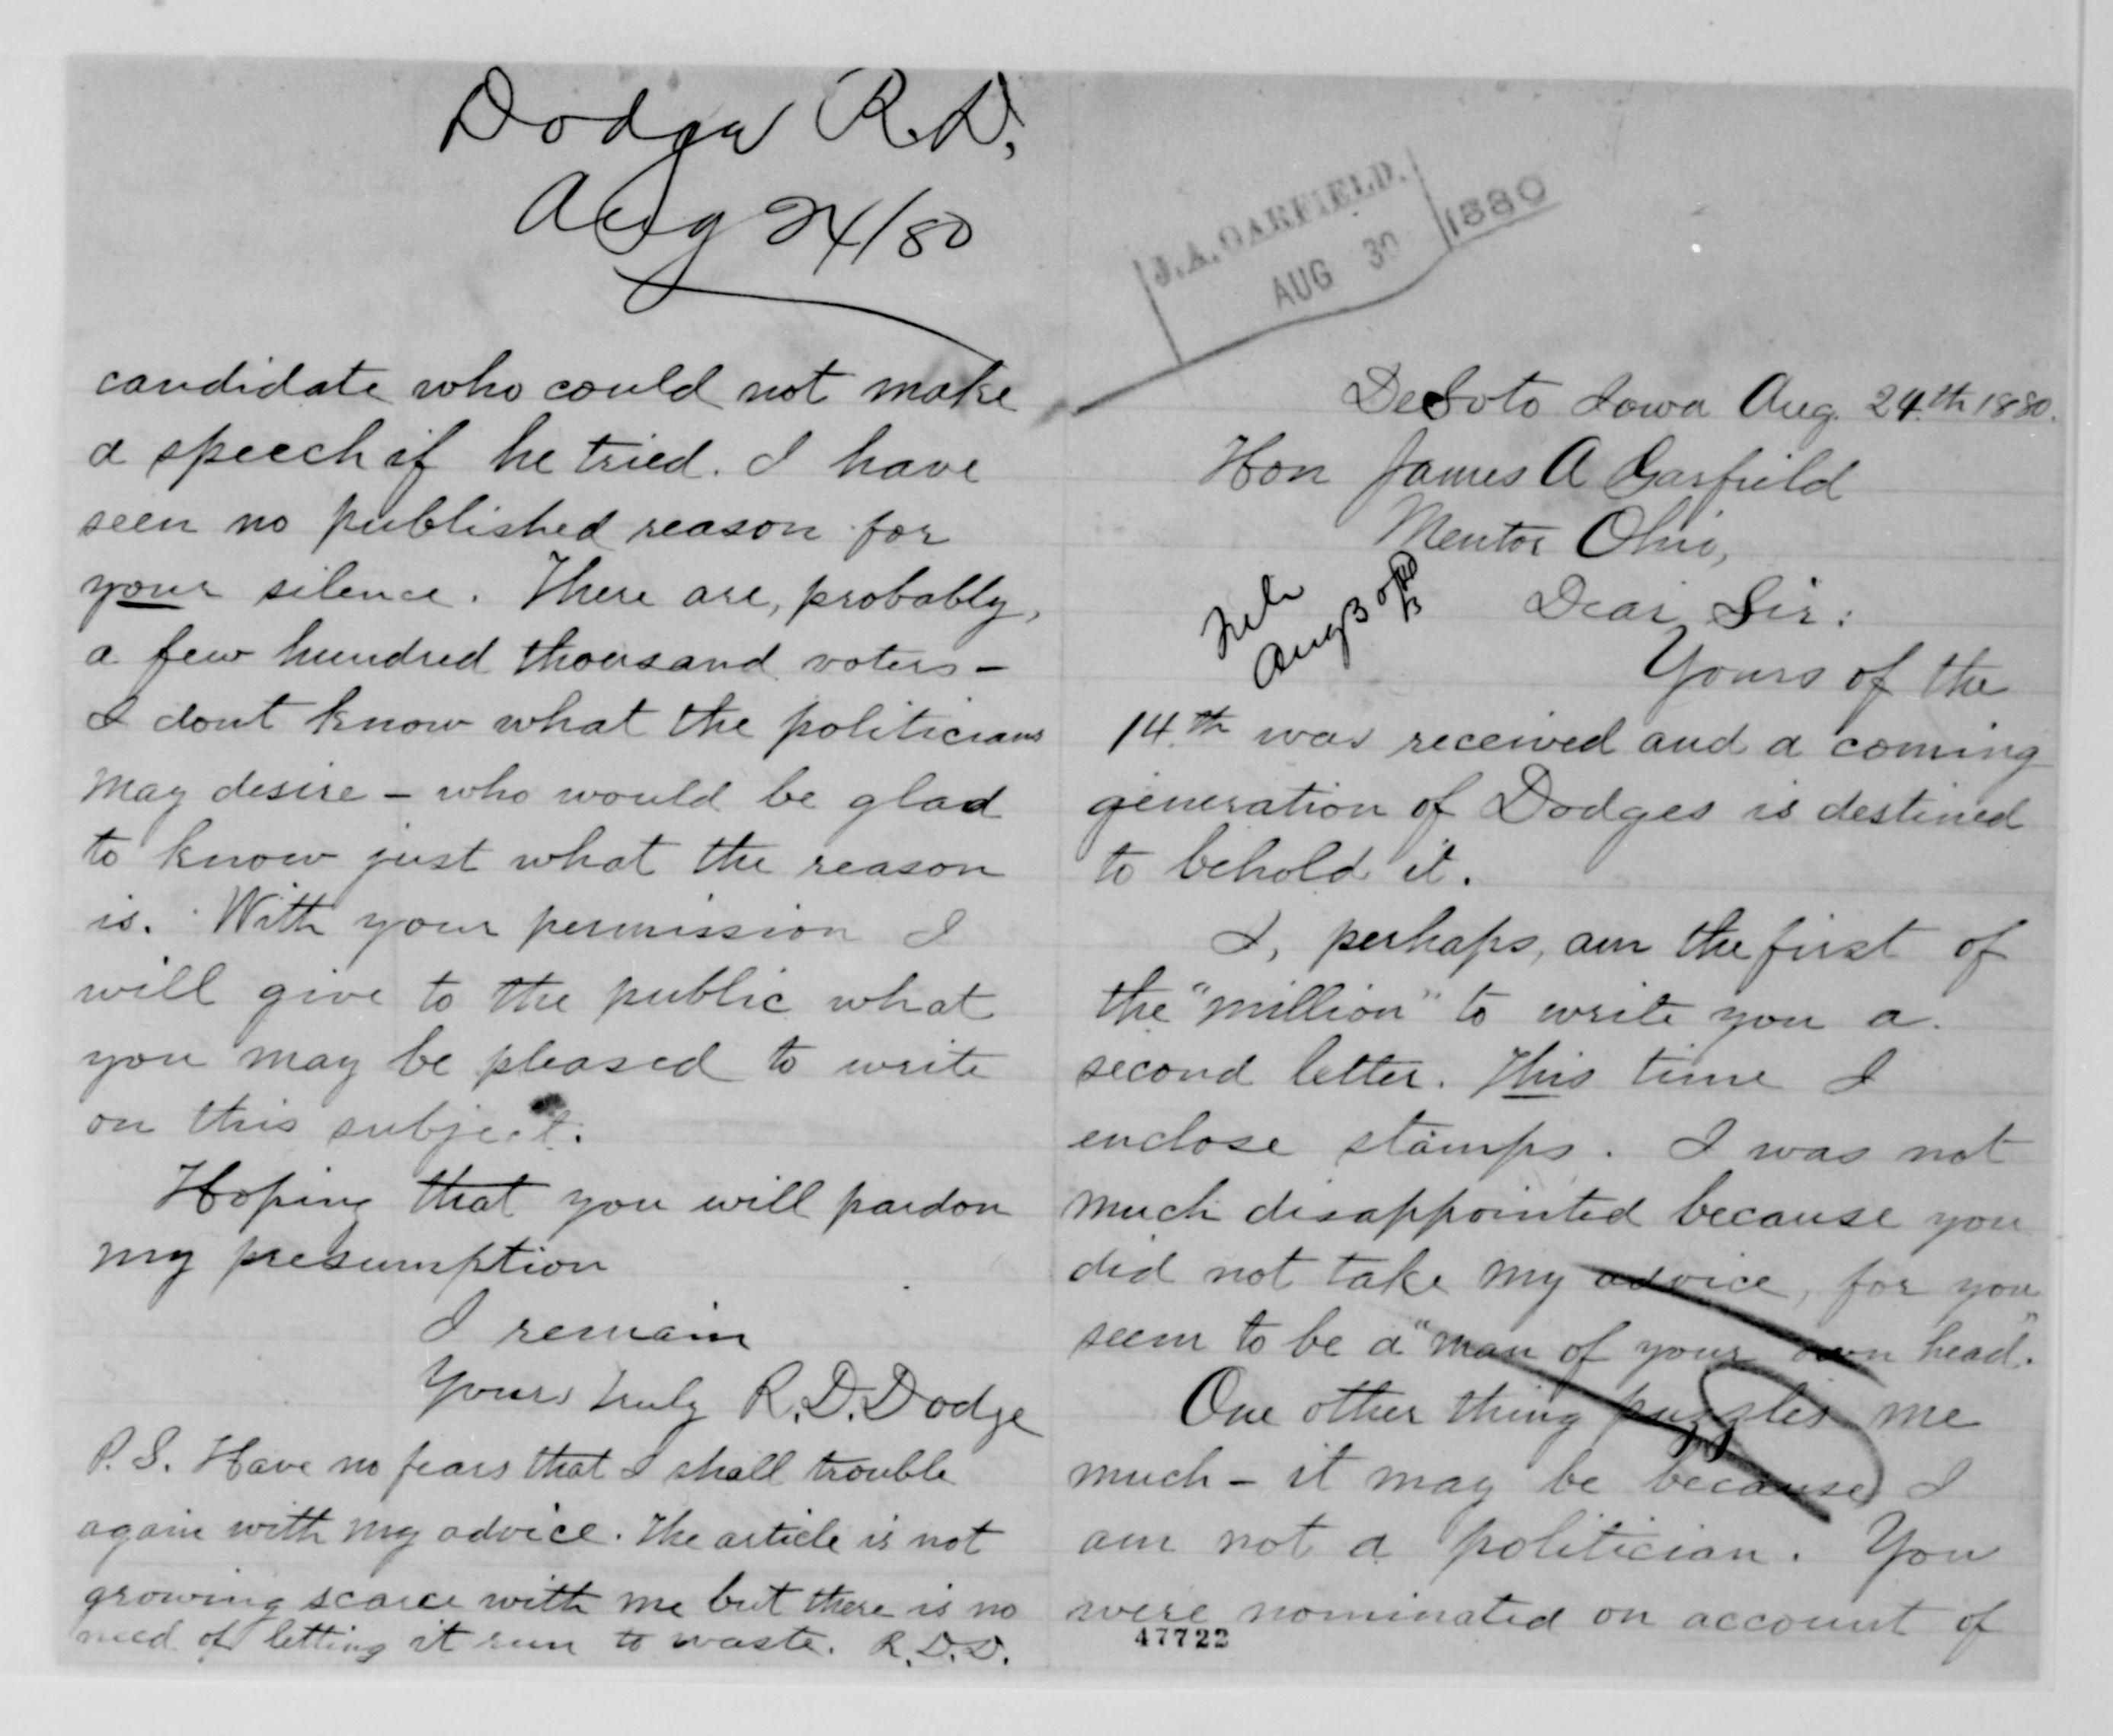 Dodge R.D.
Aug 24/80
candidate who could not make
a speech if he tried. I have
seen no published reason for
your silence. There are, probably,
a few hundred thousand voters –
I dont know what the politicians
may desire – who would be glad
to know just what the reason
is. With your permission I
will give to the public what
you may be pleased to write
on this subject.
Hoping that you will pardon
my presumption
I remain
Yours truly R.D. Dodge
P.S. Have no fears that I shall trouble
again with my advice. The article is not
growing scarce with me but there is no
need of letting it run to waste. R.D.D.
J.A. GARFIELD.
AUG 30 1880
DeSoto Iowa Aug. 24th 1880.
Hon James A Garfield
Mentor Ohio,
Dear Sir:
Aug 30
Yours of the
14th was received and a coming
generation of Dodges is destined
to behold it.
I, perhaps, am the first of
the "million" to write you a
second letter. This time I
enclose stamps. I was not
much disappointed because you
did not take my advice, for you
seem to be a "man of your own head".
One other thing puzzles me
much – it may be because I
am not a politician. You
were nominated on account of
47722